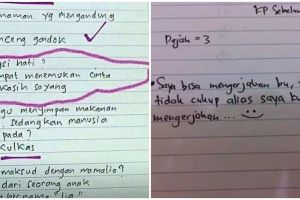 naman yg mengandung
nceng gondok
si hati ?
pat menemukan cinta
kasih sayang
gu menyimpan makanan
sedangkan manusia
pada ?
kulkas
maksud dengan mamalia ?
dari seorang anak
bernama "lia"
KP Sebelum
Pajak = 3
• Saya bisa mengerjakan bu,
tidak cukup alias saya
mengerjakan ...